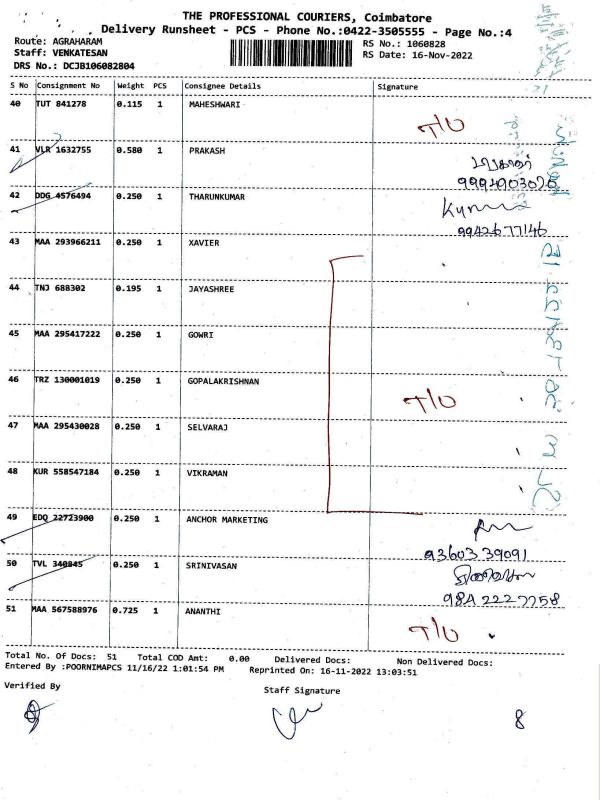 THE PROFESSIONAL COURIERS, Coimbatore
Delivery Runsheet - PCS - Phone No.:0422-3505555 - Page No.:4
Route: AGRAHARAM
RS No.: 1060828
Staff: VENKATESAN
RS Date: 16-Nov-2022
DRS No.: DCJB106082804
S No Consignment No Weight PCS Consignee Details Signature
40 TUT 841278 0.115 1 MAHESHWARI
T/O
41 VLR 1632755 0.580 1 PRAKASH
42 DDG 4576494 0.250 1 THARUNKUMAR
Kumar
9942677146
43 MAA 293966211 0.250 1 XAVIER
44 TNJ 688302 0.195 1 JAYASHREE
45 MAA 295417222 0.250 1 GOWRI
46 TRZ 130001019 0.250 1 GOPALAKRISHNAN
T/O
47 MAA 295430028 0.250 1 SELVARAJ
48 KUR 558547184 0.250 1 VIKRAMAN
49 EDQ 22723900 0.250 1 ANCHOR MARKETING
93603 39091
50 TVL 340845 0.250 1 SRINIVASAN
984 222 7758
51 MAA 567588976 0.725 1 ANANTHI
T/O
Total No. Of Docs: 51 Total COD Amt: 0.00 Delivered Docs: Non Delivered Docs:
Entered By :POORNIMAPCS 11/16/22 1:01:54 PM Reprinted On: 16-11-2022 13:03:51
Verified By
Staff Signature
8